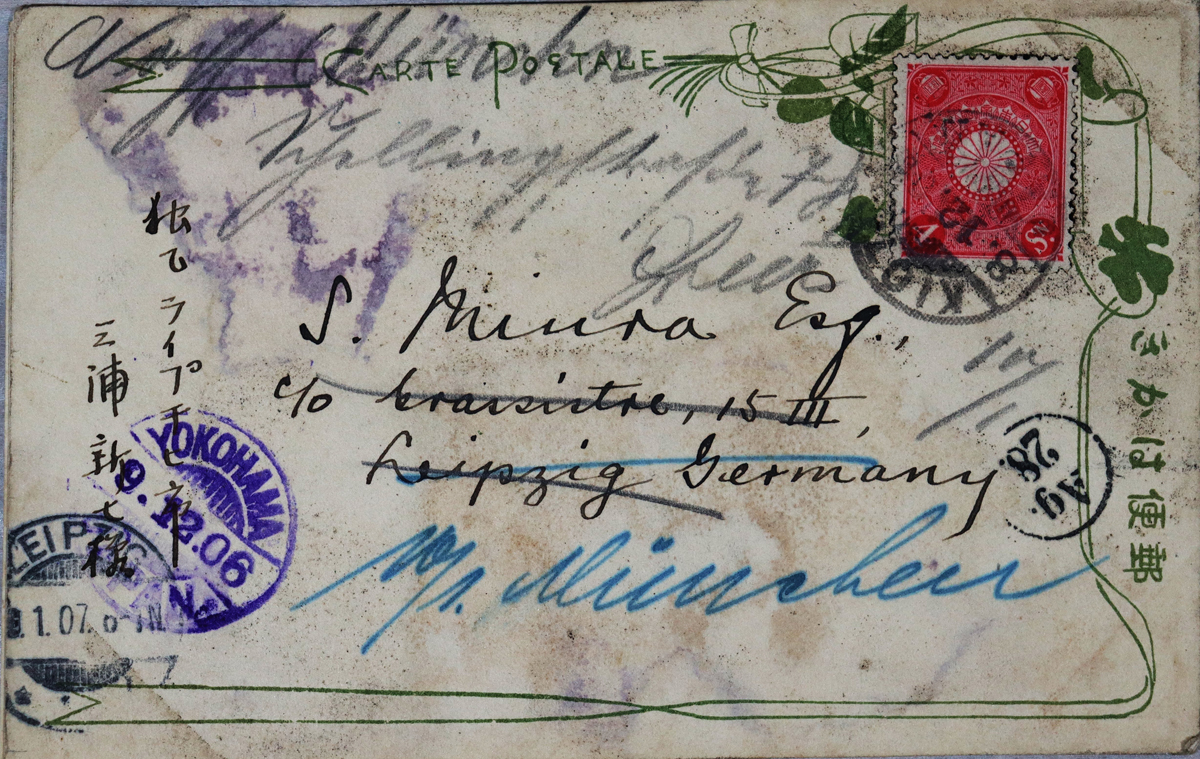 CARTE POSTALE
München
Schellingstraße
S. Miura Esq.,
c/o Grassistre, 15 III,
Leipzig Germany
München
独乙ライプチヒ市
三浦新七様
きかは便郵
YOKOHAMA
9.12.06
N.
LEIPZIG
1.07. 6-7 N
KIO
8.12.
Sn.
Ag.
28